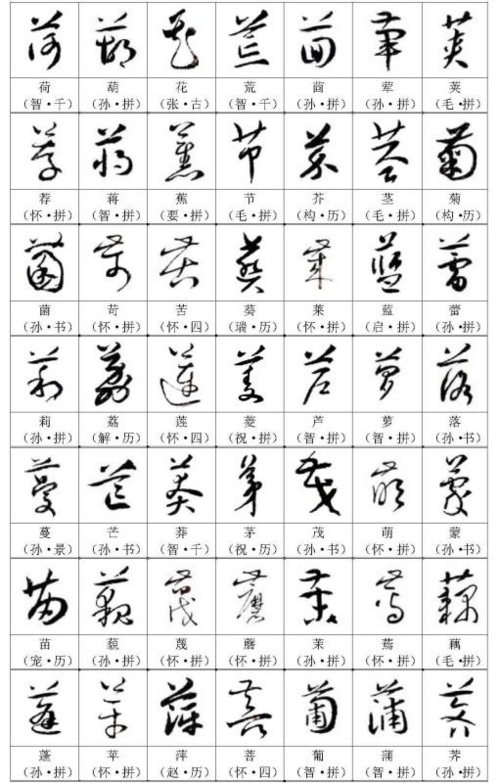 荷 葫 花 荒 茴 荤 荚
(智·千) (孙·拼) (张·古) (智·千) (孙·拼) (孙·拼) (毛·拼)
荐 蒋 蕉 节 芥 茎 菊
(怀·拼) (智·拼) (要·拼) (毛·拼) (构·历) (毛·拼) (构·历)
菌 苛 苦 葵 莱 蓝 蕾
(孙·书) (怀·拼) (怀·四) (瑞·历) (怀·拼) (启·拼) (孙·拼)
莉 荔 莲 菱 芦 萝 落
(孙·拼) (解·历) (怀·四) (祝·拼) (智·拼) (智·拼) (孙·书)
蔓 芒 莽 茅 茂 萌 蒙
(孙·景) (孙·书) (智·千) (祝·历) (孙·书) (怀·拼) (孙·书)
苗 藐 蔑 蘑 茉 蔫 藕
(宠·历) (孙·拼) (怀·拼) (怀·拼) (孙·拼) (怀·拼) (毛·拼)
蓬 苹 萍 菩 葡 蒲 荠
(孙·拼) (怀·拼) (赵·历) (怀·四) (智·拼) (智·拼) (孙·拼)